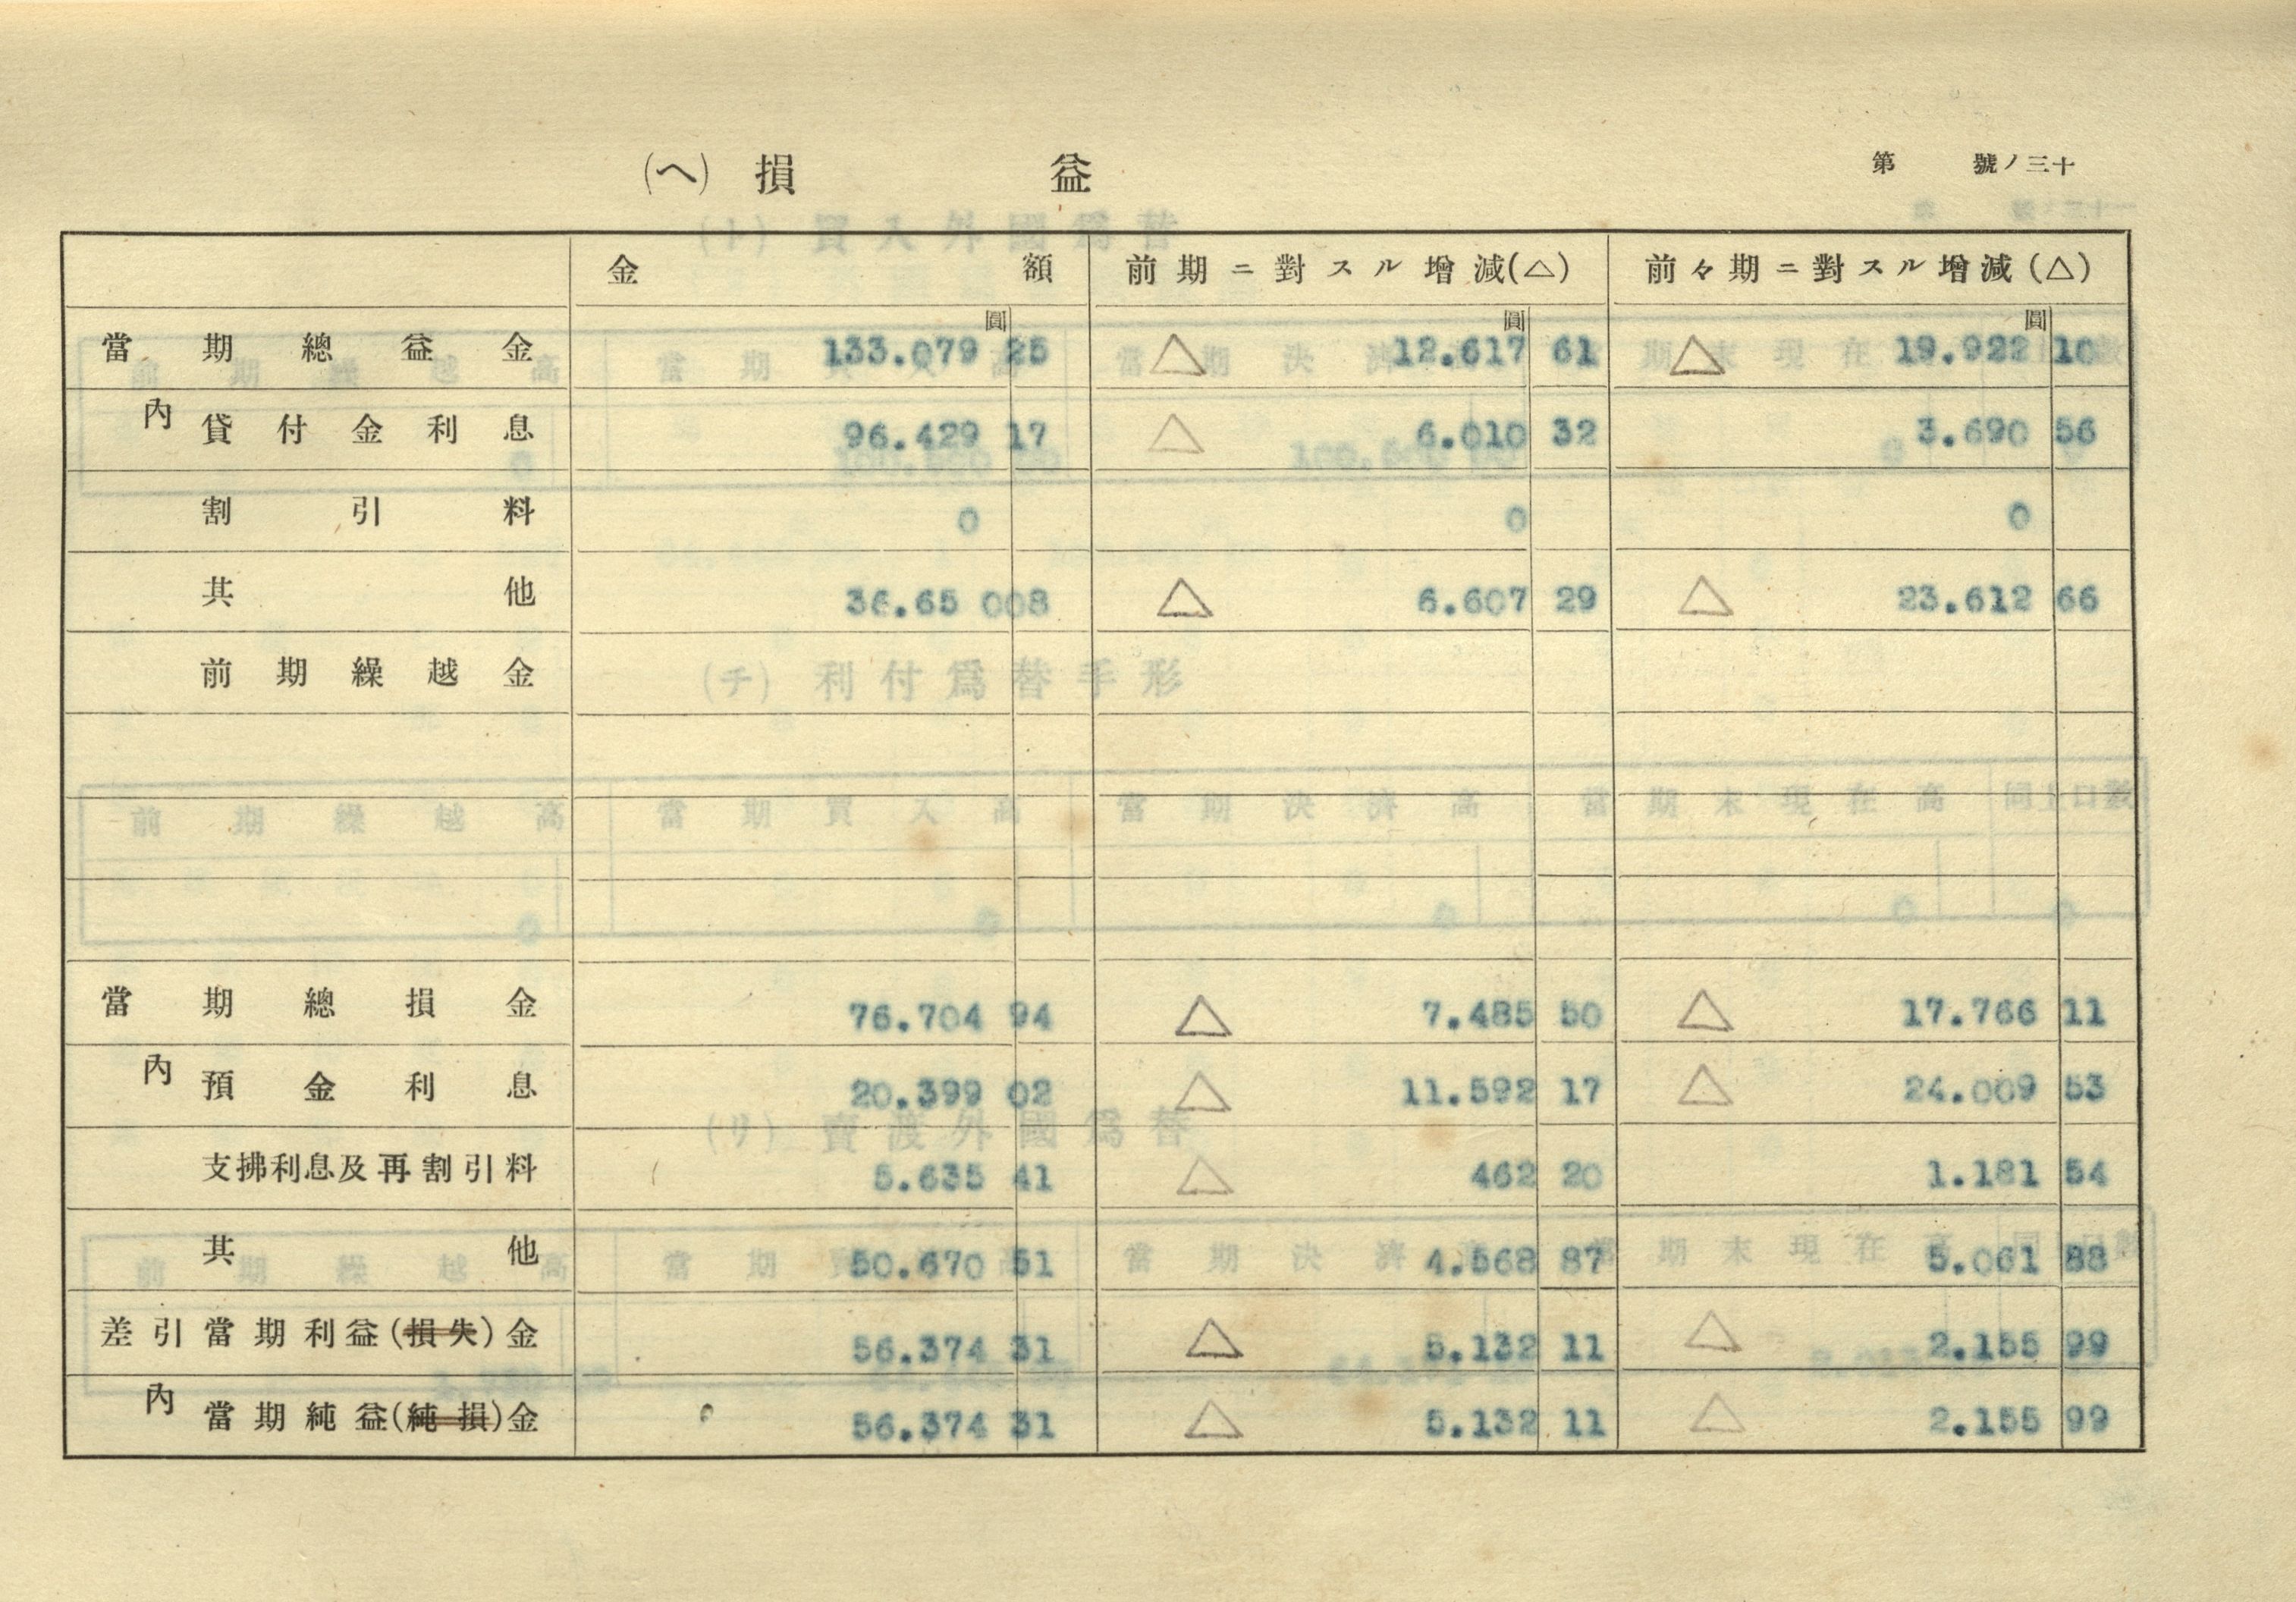 (ヘ) 損 益
第 號ノ三十
金 額 前期ニ對スル增減(△) 前々期ニ對スル增減(△)
圓 圓 圓
當期總益金 133.079 25 △ 12.617 61 △ 19.922 10
內 貸付金利息 96.429 17 △ 6.010 32 3.690 56
割引料 0 0 0
其他 36.65 008 △ 6.607 29 △ 23.612 66
前期繰越金
當期總損金 76.704 94 △ 7.485 50 △ 17.766 11
內 預金利息 20.399 02 △ 11.592 17 △ 24.009 53
支拂利息及再割引料 5.635 41 △ 462 20 1.181 54
其他 50.670 51 4.568 87 5.061 88
差引當期利益(損失)金 56.374 31 △ 5.132 11 △ 2.155 99
內 當期純益(純損)金 56.374 31 △ 5.132 11 △ 2.155 99
(ト) 買入外國爲替
(チ) 利付爲替手形
前期繰越高 當期買入高 當期決濟高 當期末現在高 同上口數
0 0 0 0 0
(リ) 賣渡外國爲替